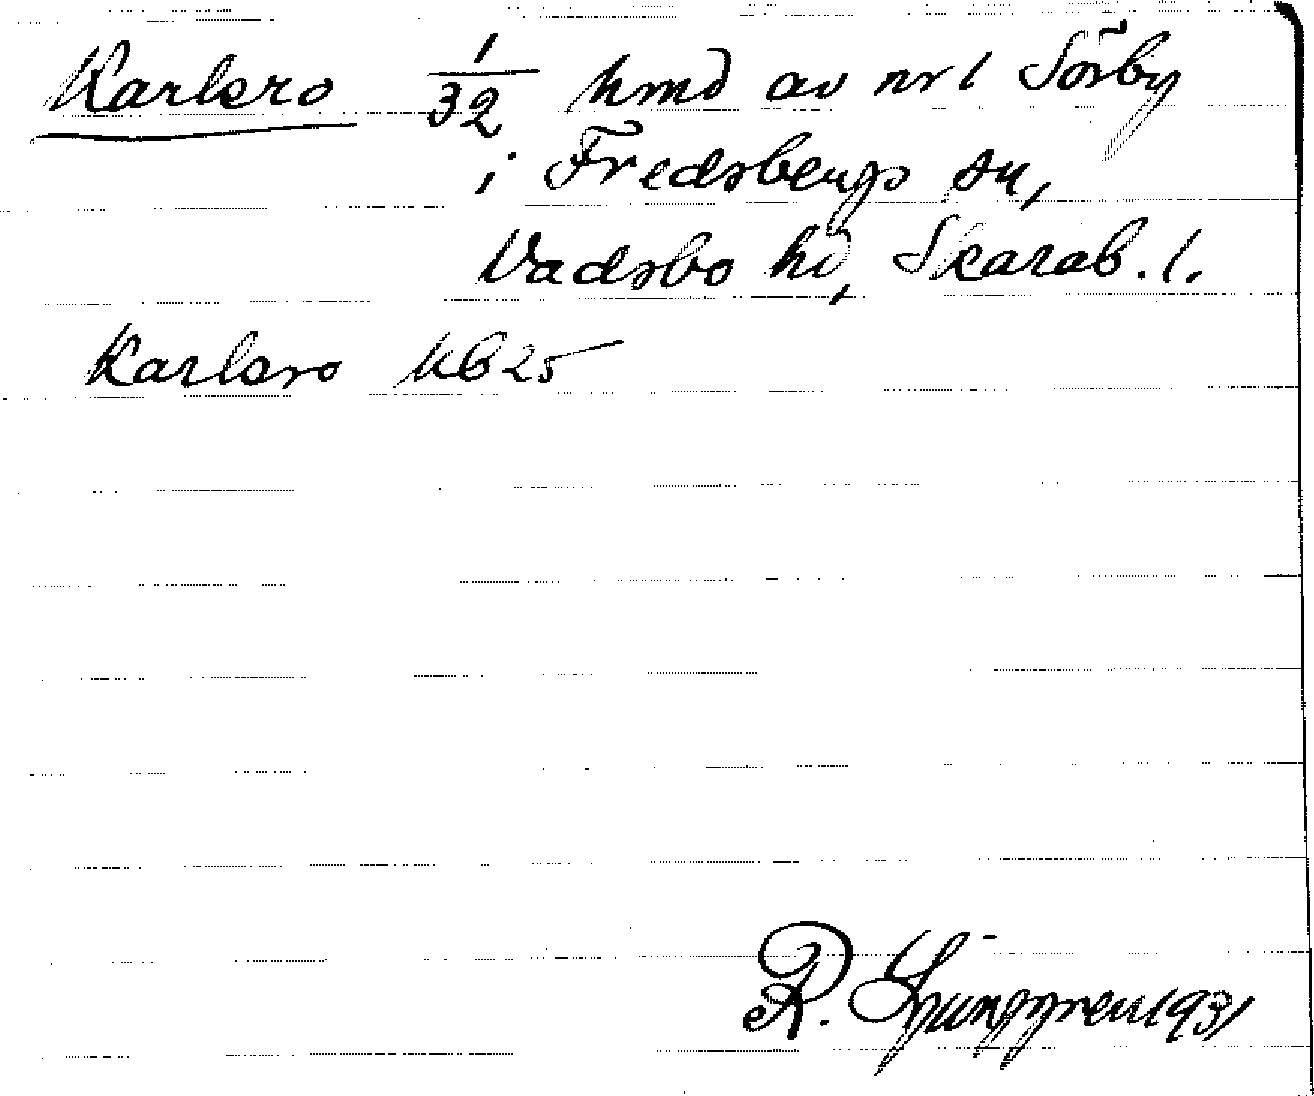 Karlsro 1/32 hmd av nr 1 Sörby
i Fredsbergs sn,
Vadsbo hd, Skarab. l.
Karlsro kb 25
R. Ljunggren 1931